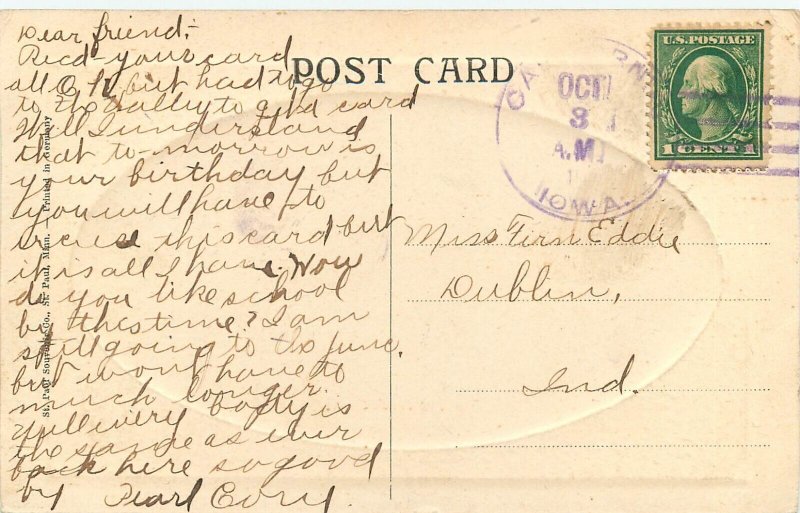 Dear friend,-
Recd- your card
all O.K. but had to go
to the to card
Well I understand
that to-morrow is
your birthday but
you will have to
excuse this card but
it is all I have. How
do you like school
by this time? I am
still going to the June.
but wont have to
much longer.
Well every body is
the same as ever
back here so good
by Pearl
POST CARD
St. Paul Souvenir Co., St. Paul, Minn. — Printed in Germany
OCT
3
A.M.
IOWA.
U.S. POSTAGE
1 CENT 1
Miss Fern Eddie
Dublin,
Ind.